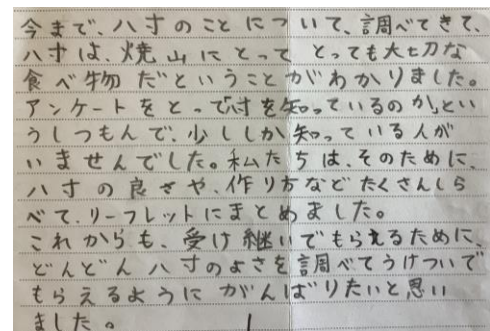 今まで、八寸のことについて、調べてきて、
八寸は、焼山にとってとっても大切な
食べ物だということがわかりました。
アンケートをとって八寸を知っているのか、とい
うしつもんで、少ししか知っている人が
いませんでした。私たちは、そのために、
八寸の良さや、作り方などたくさんしら
べて、リーフレットにまとめました。
これからも、受け継いでもらえるために、
どんどん八寸のよさを調べてうけついで
もらえるようにがんばりたいと思い
ました。